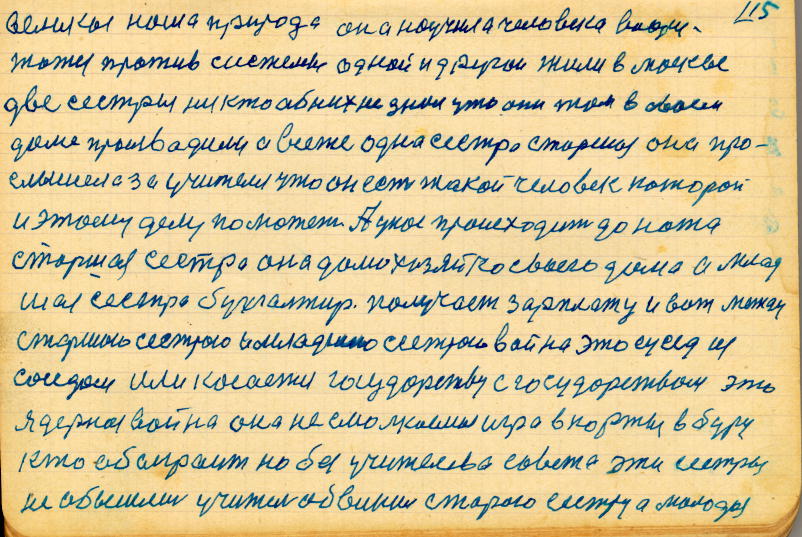 115
великая наша природа она научила человека вооро-
тожы против системы одной и другой жили в москве
две сестры никто об них не знал что они там в своем
доме произвадили а веже одна сестра старшая она про-
слышела за учителя что он есть такой человек которой
и этому делу поможет. А у нас происходит до ножа
старшая сестра она домохозяйко своего дома а млад
шая сестра бухгалтир. получает зарплату и вот между
старшею сестрою и младшею сестрою война это сусед из
соседом или косаежи государству с государством это
ядерноя война она не смолкоемая игра в карты в буру
кто обыграит но без учителева совета эти сестры
не обышли учител обвинил старою сестру а молодыя